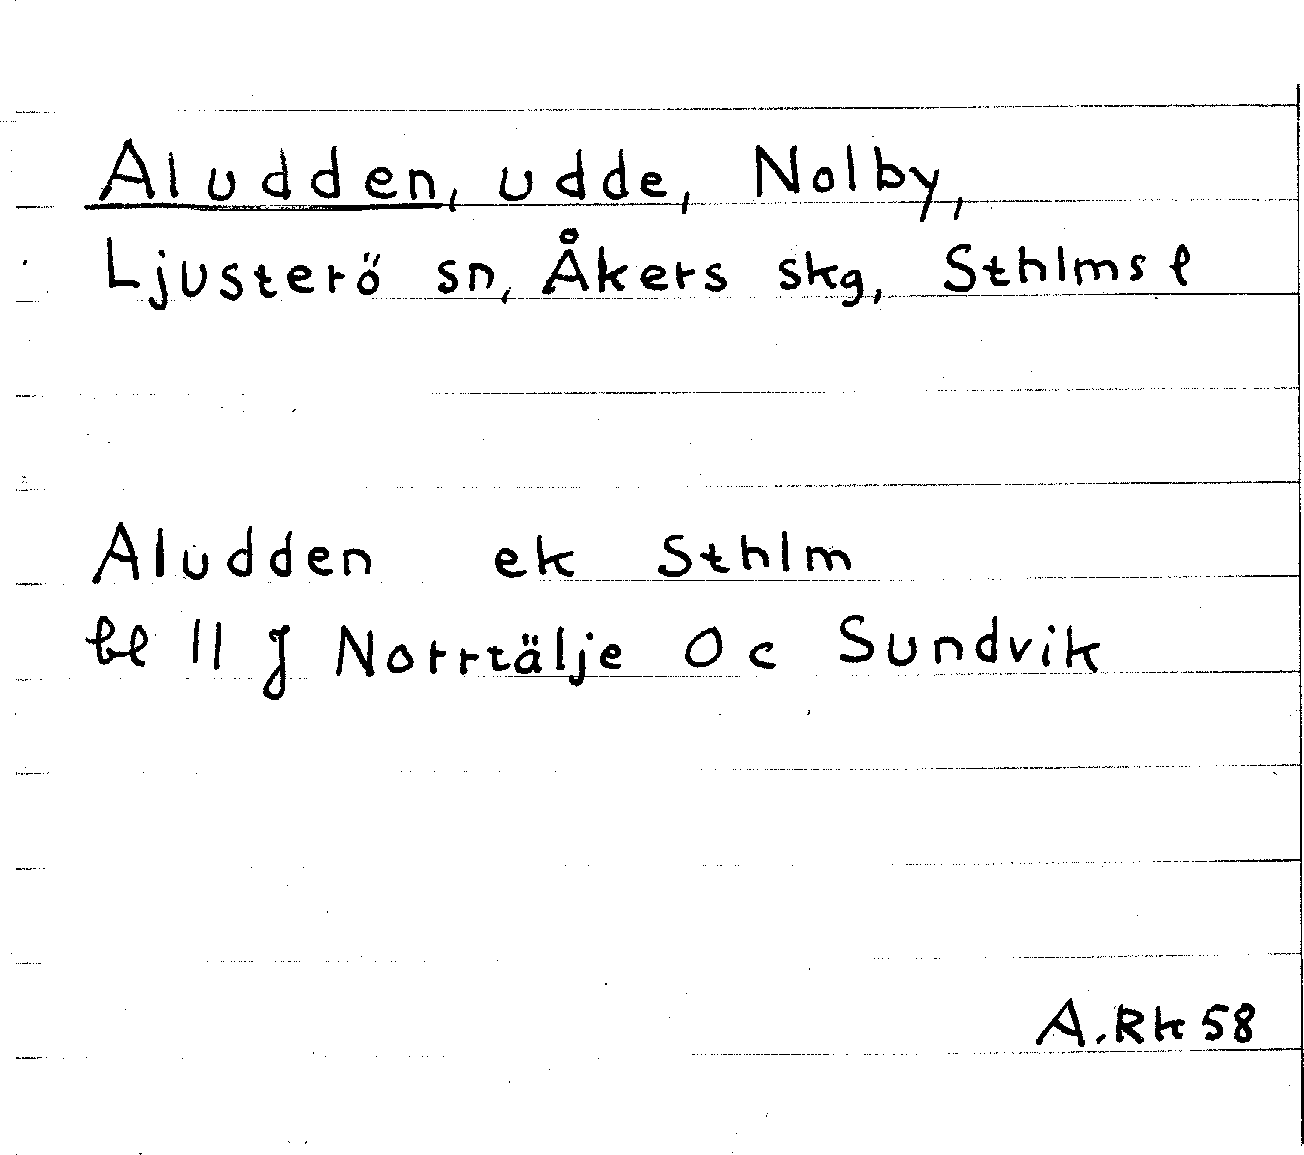 Aludden, udde, Nolby,
Ljusterö sn, Åkers skg, Sthlms l
Aludden ek Sthlm
bl 11 J Norrtälje O c Sundvik
A.Rk 58